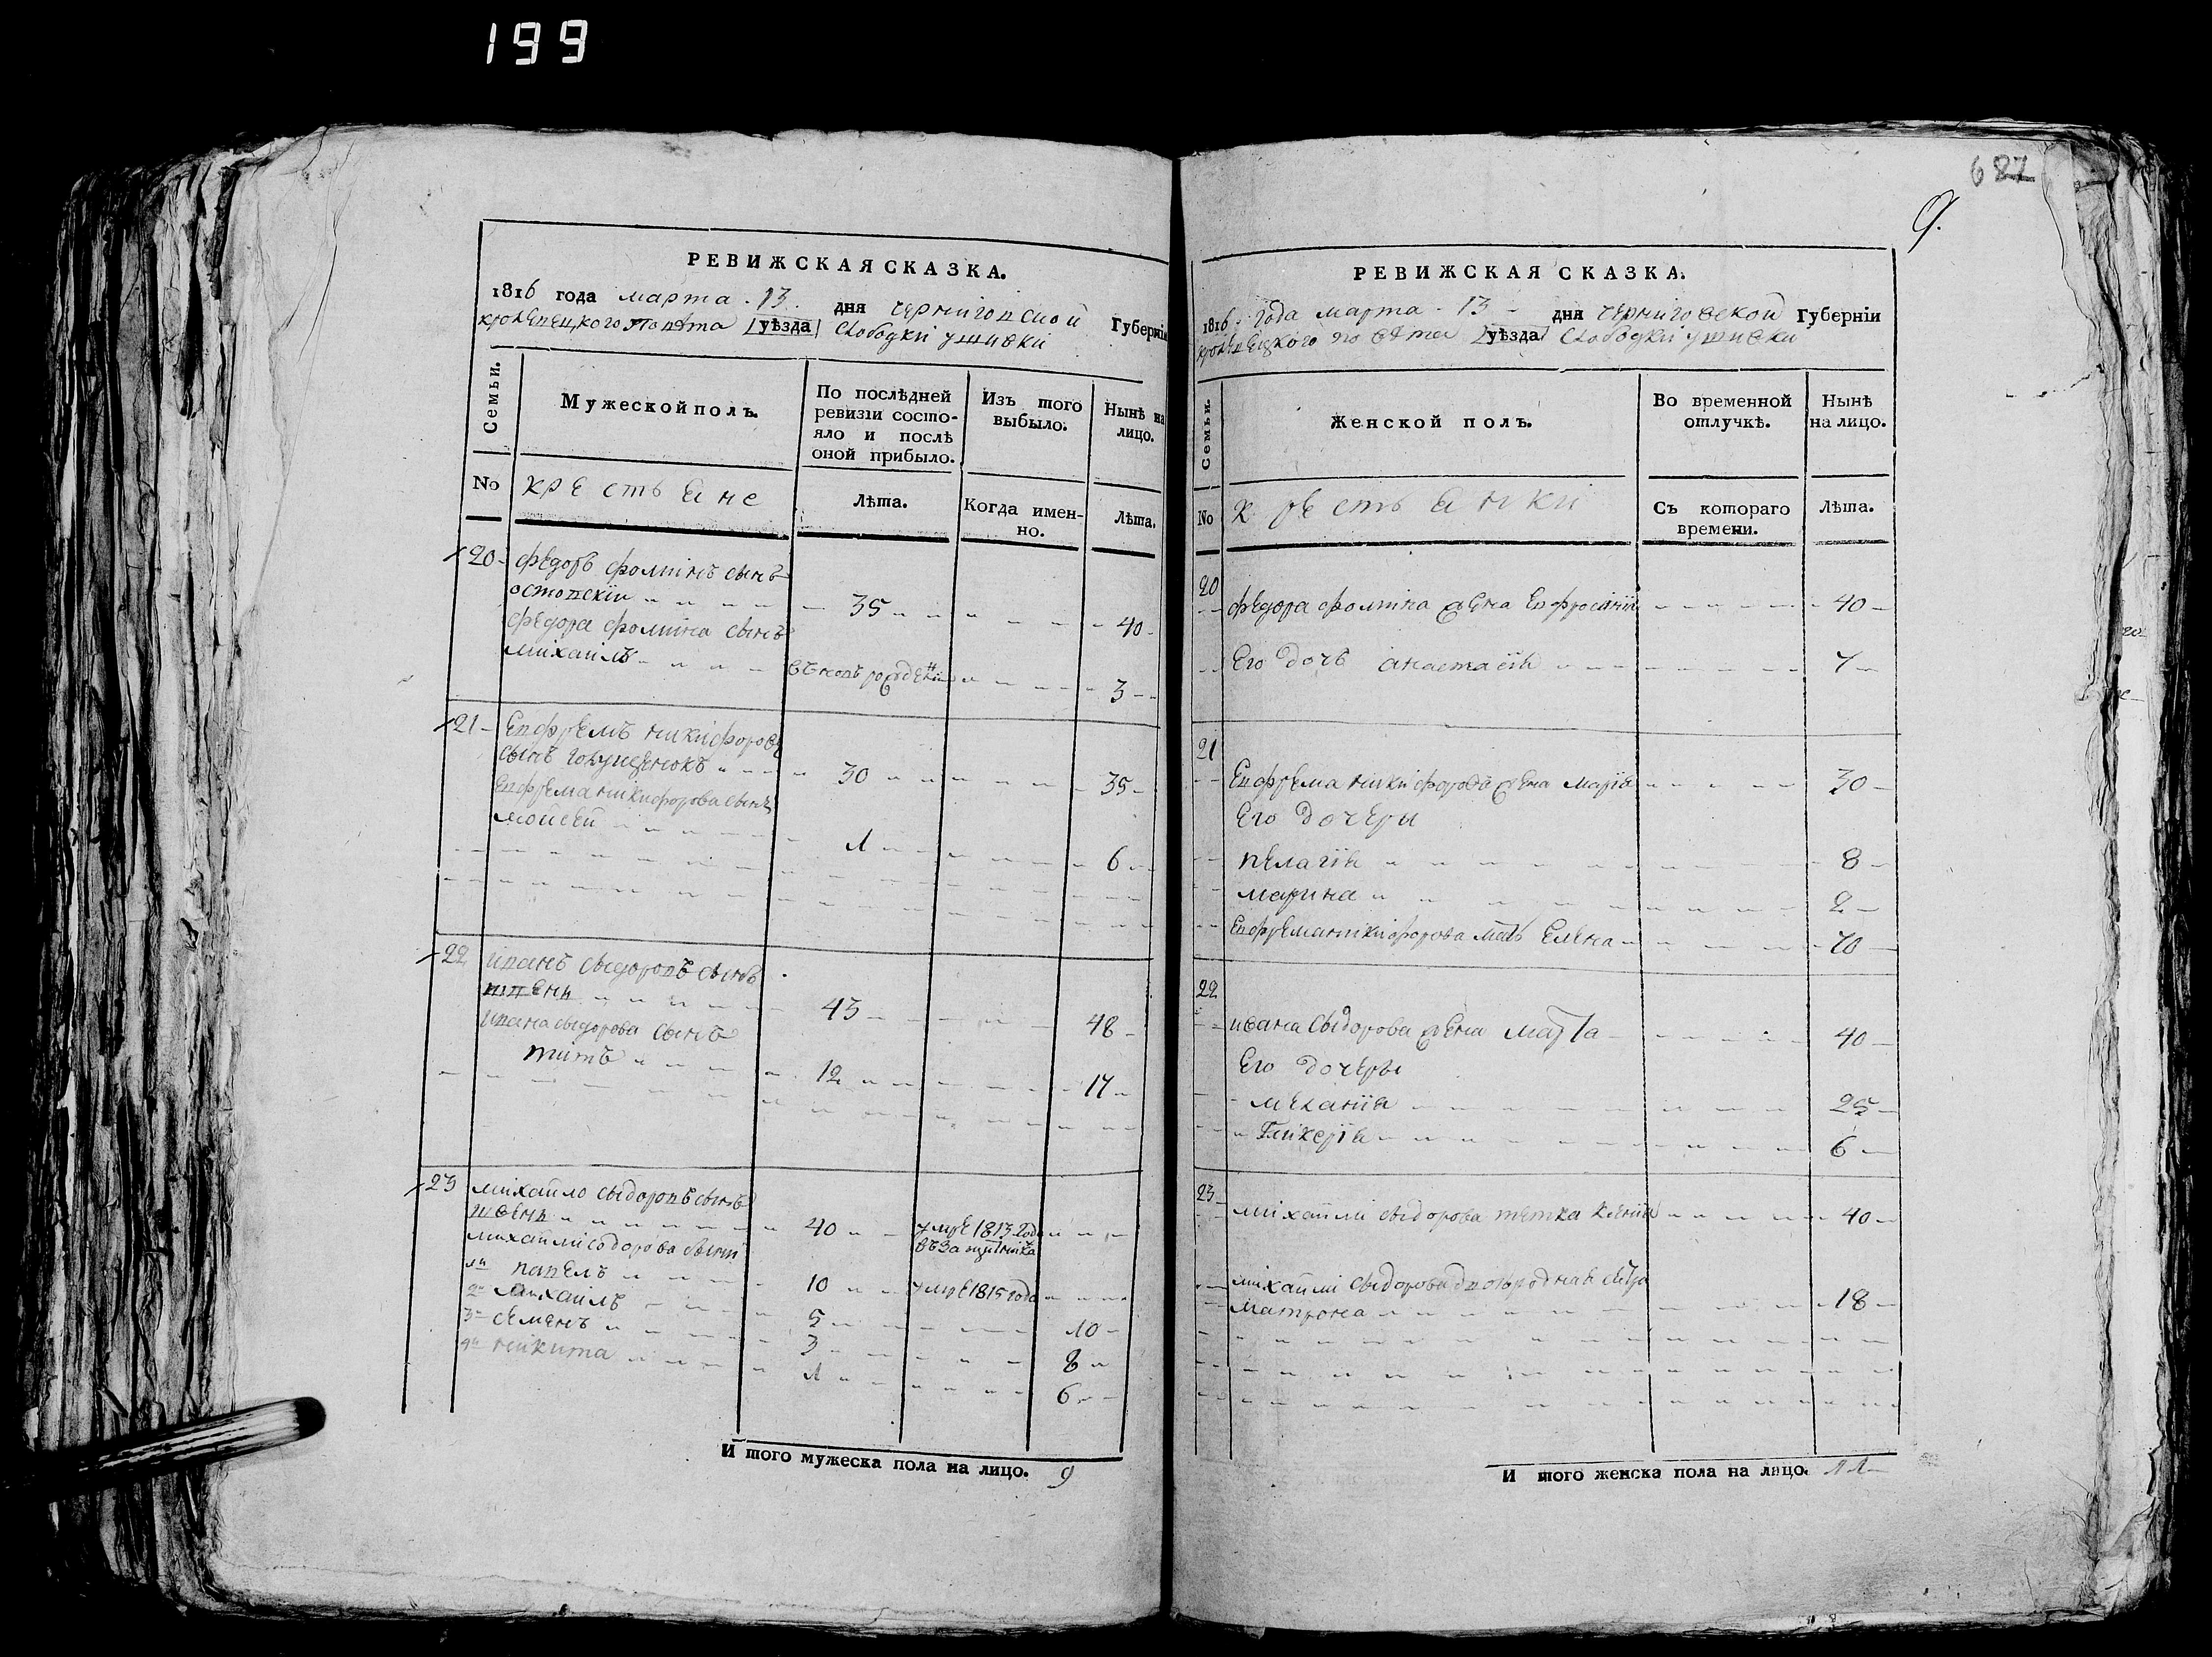 199
687
9.
РЕВИЖСКАЯ СКАЗКА.
1816 года марта 13 дня черниговской Губерніи
кролевецкого повѣта уѣзда слободки ушивки
Семьи.
Мужеской полъ.
По послѣдней ревизіи состояло и послѣ оной прибыло.
Изъ того выбыло.
Нынѣ на лицо.
No крестьяне
Лѣта.
Когда именно.
Лѣта.
20 федоръ фоминъ сынъ
35 40
федора фомина сынъ
михаилъ 3
21 Ефремъ никифоровъ
сынъ 30 35
Ефрема никифорова сынъ
мойсей 1 6
22 иванъ сыдоровъ сынъ
43 48
ивана сыдорова сынъ
титъ 12 17
23 михайло сыдоровъ сынъ
40 умре 1813 года
михайли сыдорова сыны
1й павелъ 10 умре 1815 года
2й михаилъ 5 10
3й семенъ 3 8
4й никита 1 6
И того мужеска пола на лицо. 9
РЕВИЖСКАЯ СКАЗКА.
1816 года марта 13 дня черниговской Губерніи
кролевецкого повѣта уѣзда слободки ушивки
Семьи.
Женской полъ.
Во временной отлучкѣ.
Нынѣ на лицо.
No крестьянки
Съ котораго времени.
Лѣта.
20 федора фомина жена Евфросинія 40
Его дочь анастасія 7
21
Ефрема никифорова жена марія 30
Его дочеры
пелагія 8
марина 2
Ефрема никифорова мать Елена 70
22
ивана сыдорова жена марѳа 40
Его дочеры
меланія 25
Гликерія 6
23 михайли сыдорова тетка 40
михайли сыдорова двоюродная
матрона 18
И того женска пола на лицо. 11